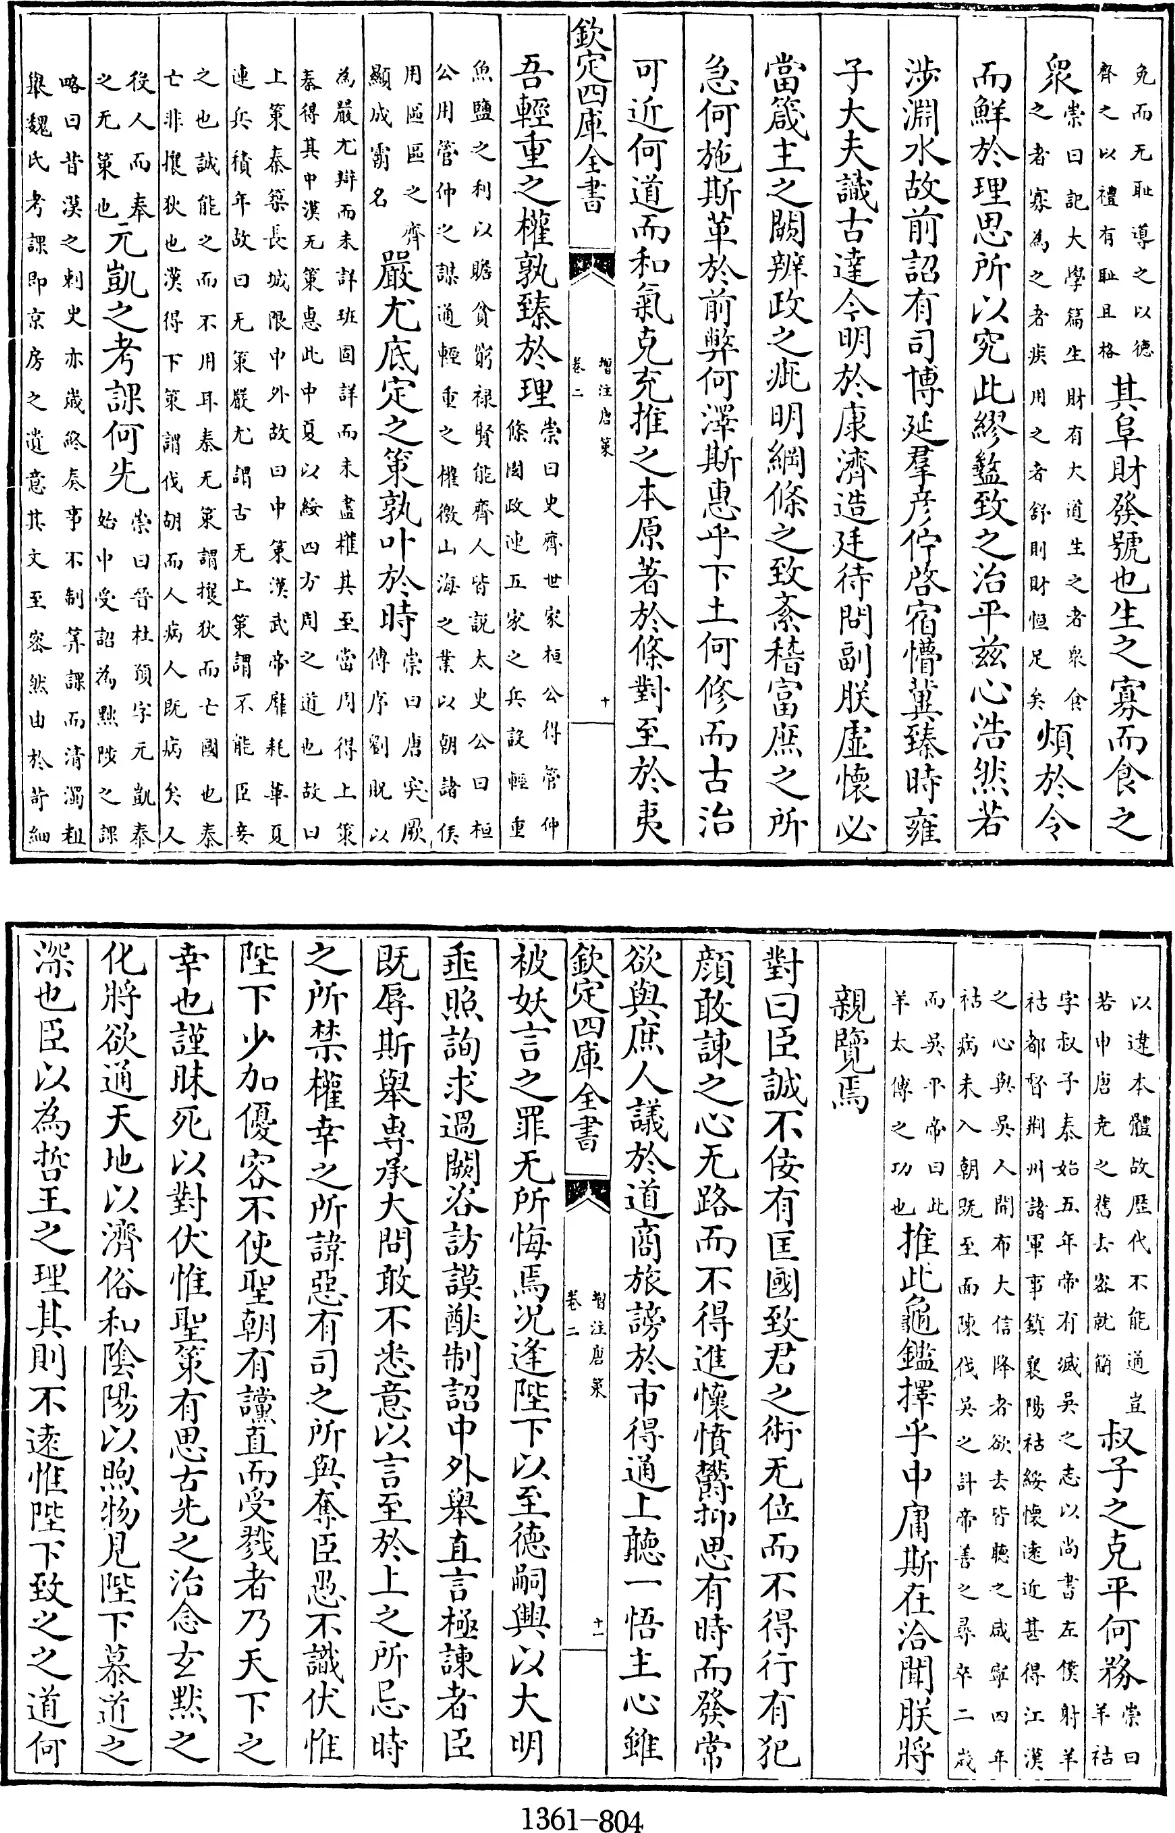 免而无耻導之以德
齊之以禮有耻且格
其阜財發號也生之寡而食之
衆
崇曰記大學篇生財有大道生之者衆食
之者寡為之者疾用之者舒則財恒足矣
煩於令
而鮮於理思所以究此繆盭致之治平兹心浩然若
涉淵水故前詔有司博延羣彦佇啓宿懵冀臻時雍
子大夫識古達今明於康濟造廷待問副朕虛懷必
當箴主之闕辨政之疵明綱條之致紊稽富庶之所
急何施斯革於前弊何澤斯惠乎下土何修而古治
可近何道而和氣克充推之本原著於條對至於夷
欽定四庫全書
增注唐策
卷二
十
吾輕重之權孰臻於理
崇曰史齊世家桓公得管仲
修國政連五家之兵設輕重
魚鹽之利以贍貧窮禄賢能齊人皆說太史公曰桓
公用管仲之謀通輕重之權徼山海之業以朝諸侯
用區區之齊
顯成霸名
嚴尤底定之策孰叶於時
崇曰唐突厥
傳序劉貺以
為嚴尤辯而未詳班固詳而未盡榷其至當周得上策
秦得其中漢无策惠此中夏以綏四方周之道也故曰
上策秦築長城限中外故曰中策漢武帝靡耗華夏
連兵積年故曰无策嚴尤謂古无上策謂不能臣妾
之也誠能之而不用耳秦无策謂攘狄而亡國也秦
亡非攘狄也漢得下策謂伐胡而人病人既病矣人
役人而奉
之无策也
元凱之考課何先
崇曰晉杜預字元凱泰
始中受詔為黜陟之課
略曰昔漢之刺史亦歲終奏事不制筭課而清濁粗
舉魏氏考課即京房之遺意其文至宻然由於苛細
以違本體故歴代不能通豈
若申唐堯之舊去宻就簡
叔子之克平何務
崇曰
羊祜
字叔子泰始五年帝有滅吳之志以尚書左僕射羊
祜都督荆州諸軍事鎮襄陽祜綏懷遠近甚得江漢
之心與吳人開布大信降者欲去皆聽之咸寧四年
祜病未入朝既至面陳伐吳之計帝善之尋卒二歳
而吳平帝曰此
羊太傅之功也
推此龜鑑擇乎中庸斯在洽聞朕將
親覽焉
對曰臣誠不佞有匡國致君之術无位而不得行有犯
顔敢諫之心无路而不得進懷憤欝抑思有時而發常
欲與庶人議於道商旅謗於市得通上聽一悟主心雖
欽定四庫全書
增注唐策
卷二
十一
被妖言之罪无所悔焉况逢陛下以至德嗣興以大明
垂照詢求過闕咨訪謨猷制詔中外舉直言極諫者臣
既辱斯舉專承大問敢不悉意以言至於上之所忌時
之所禁權幸之所諱惡有司之所與奪臣愚不識伏惟
陛下少加優容不使聖朝有讜直而受戮者乃天下之
幸也謹昧死以對伏惟聖策有思古先之治念玄黙之
化將欲通天地以濟俗和隂陽以煦物見陛下慕道之
深也臣以為哲王之理其則不逺惟陛下致之之道何
1361-804